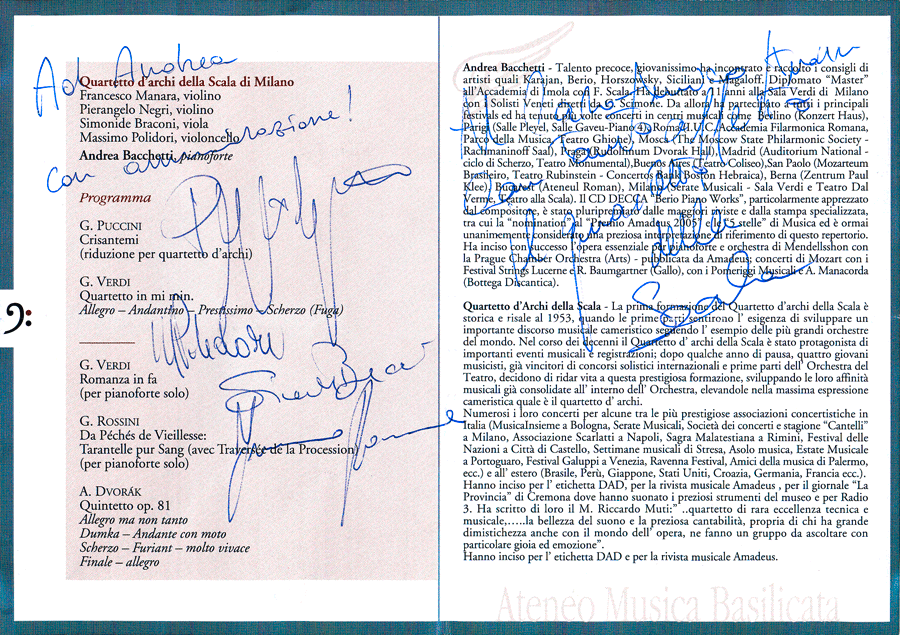 Ad Andrea
con ammirazione!
Quartetto d'archi della Scala di Milano
Francesco Manara, violino
Pierangelo Negri, violino
Simonide Braconi, viola
Massimo Polidori, violoncello
Andrea Bacchetti, pianoforte
Programma
G. PUCCINI
Crisantemi
(riduzione per quartetto d'archi)
G. VERDI
Quartetto in mi min.
Allegro – Andantino – Prestissimo – Scherzo (Fuga)
G. VERDI
Romanza in fa
(per pianoforte solo)
G. ROSSINI
Da Péchés de Vieillesse:
Tarantelle pur Sang (avec Traversée de la Procession)
(per pianoforte solo)
A. DVORÁK
Quintetto op. 81
Allegro ma non tanto
Dumka – Andante con moto
Scherzo – Furiant – molto vivace
Finale – allegro
Andrea Bacchetti - Talento precoce, giovanissimo ha incontrato e raccolto i consigli di
artisti quali Karajan, Berio, Horszowsky, Siciliani e Magaloff. Diplomato "Master"
all'Accademia di Imola con F. Scala. Ha debuttato a 11 anni alla Sala Verdi di Milano
con I Solisti Veneti diretti da C. Scimone. Da allora ha partecipato a tutti i principali
festival ed ha tenuto più volte concerti in centri musicali come Berlino (Konzert Haus),
Parigi (Salle Pleyel, Salle Gaveu-Piano 4), Roma I.U.C, Accademia Filarmonica Romana,
Parco della Musica, Teatro Ghione), Mosca (The Moscow State Philarmonic Society -
Rachmaninoff Saal), Praga (Rudolfinum Dvorak Hall), Madrid (Auditorium National -
ciclo di Scherzo, Teatro Monumental),Buenos Aires (Teatro Coliseo),San Paolo (Mozarteum
Brasileiro, Teatro Rubinstein - Concertos Bank Boston Hebraica), Berna (Zentrum Paul
Klee), Bucarest (Ateneul Roman), Milano (Serate Musicali - Sala Verdi e Teatro Dal
Verme, Teatro alla Scala). Il CD DECCA "Berio Piano Works", particolarmente apprezzato
dal compositore, è stato pluripremiato dalle maggiori riviste e dalla stampa specializzata,
tra cui la "nomination" al "Premio Amadeus 2005" e le "5 stelle" di Musica ed è ormai
unanimemente considerato una preziosa interpretazione di riferimento di questo repertorio.
Ha inciso con successo l'opera essenziale per pianoforte e orchestra di Mendellsshon con
la Prague Chamber Orchestra (Arts) - pubblicata da Amadeus; concerti di Mozart con i
Festival Strings Lucerne e R. Baumgartner (Gallo), con i Pomeriggi Musicali e A. Manacorda
(Bottega Discantica).
Quartetto d'Archi della Scala - La prima formazione del Quartetto d'archi della Scala è
storica e risale al 1953, quando le prime parti sentirono l' esigenza di sviluppare un
importante discorso musicale cameristico seguendo l' esempio delle più grandi orchestre
del mondo. Nel corso dei decenni il Quartetto d' archi della Scala è stato protagonista di
importanti eventi musicali e registrazioni; dopo qualche anno di pausa, quattro giovani
musicisti, già vincitori di concorsi solistici internazionali e prime parti dell' Orchestra del
Teatro, decidono di ridar vita a questa prestigiosa formazione, sviluppando le loro affinità
musicali già consolidate all' interno dell' Orchestra, elevandole nella massima espressione
cameristica quale è il quartetto d' archi.
Numerosi i loro concerti per alcune tra le più prestigiose associazioni concertistiche in
Italia (MusicaInsieme a Bologna, Serate Musicali, Società dei concerti e stagione "Cantelli"
a Milano, Associazione Scarlatti a Napoli, Sagra Malatestiana a Rimini, Festival delle
Nazioni a Città di Castello, Settimane musicali di Stresa, Asolo musica, Estate Musicale
a Portoguaro, Festival Galuppi a Venezia, Ravenna Festival, Amici della musica di Palermo,
ecc.) e all' estero (Brasile, Perù, Giappone, Stati Uniti, Croazia, Germania, Francia ecc.).
Hanno inciso per l' etichetta DAD, per la rivista musicale Amadeus , per il giornale "La
Provincia" di Cremona dove hanno suonato i preziosi strumenti del museo e per Radio
3. Ha scritto di loro il M. Riccardo Muti:" ..quartetto di rara eccellenza tecnica e
musicale,.....la bellezza del suono e la preziosa cantabilità, propria di chi ha grande
dimistichezza anche con il mondo dell' opera, ne fanno un gruppo da ascoltare con
particolare gioia ed emozione".
Hanno inciso per l' etichetta DAD e per la rivista musicale Amadeus.
Ateneo Musica Basilicata